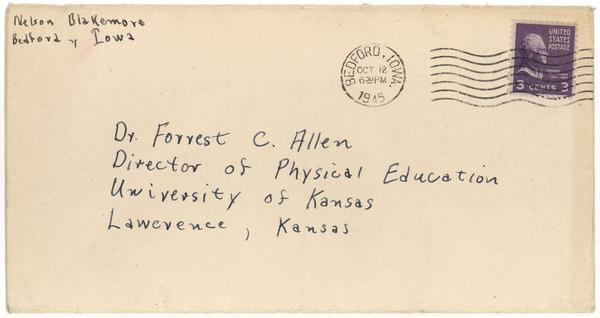 Nelson Blakemore
Bedford, Iowa
BEDFORD, IOWA.
OCT 12
6 30 PM
1945
UNITED
STATES
POSTAGE
3 CENTS 3
Dr. Forrest C. Allen
Director of Physical Education
University of Kansas
Lawerence, Kansas